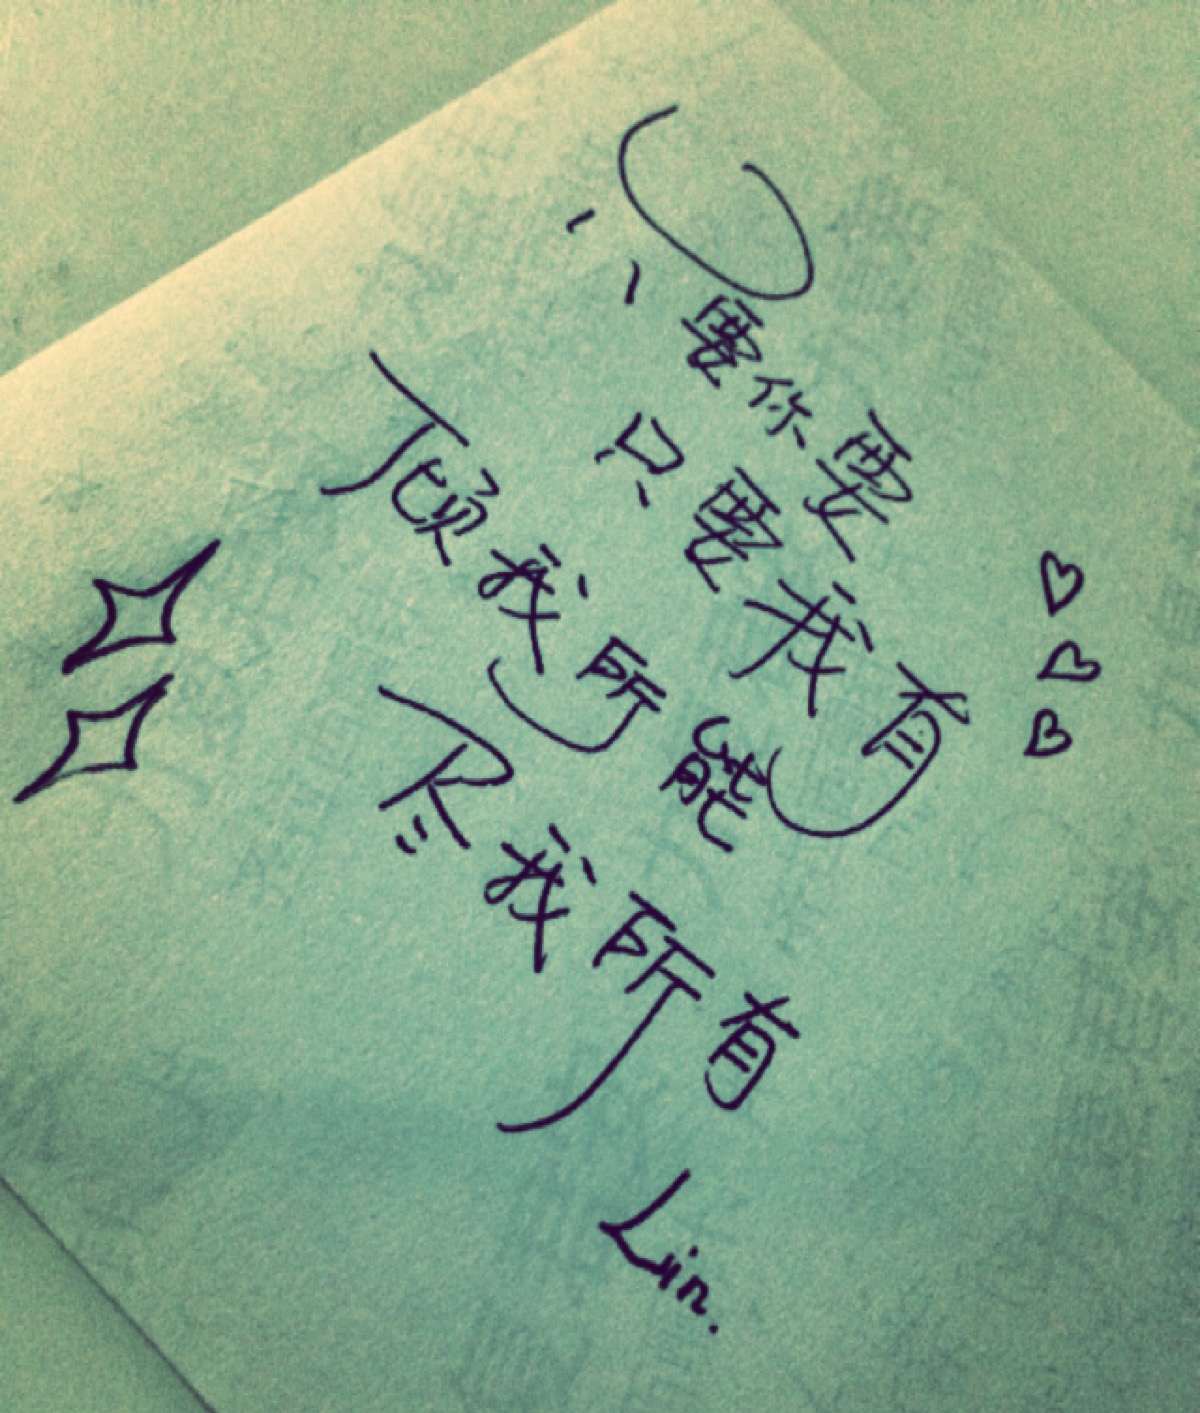 只要你要
只要我有
顾我所能
尽我所有
Lin.